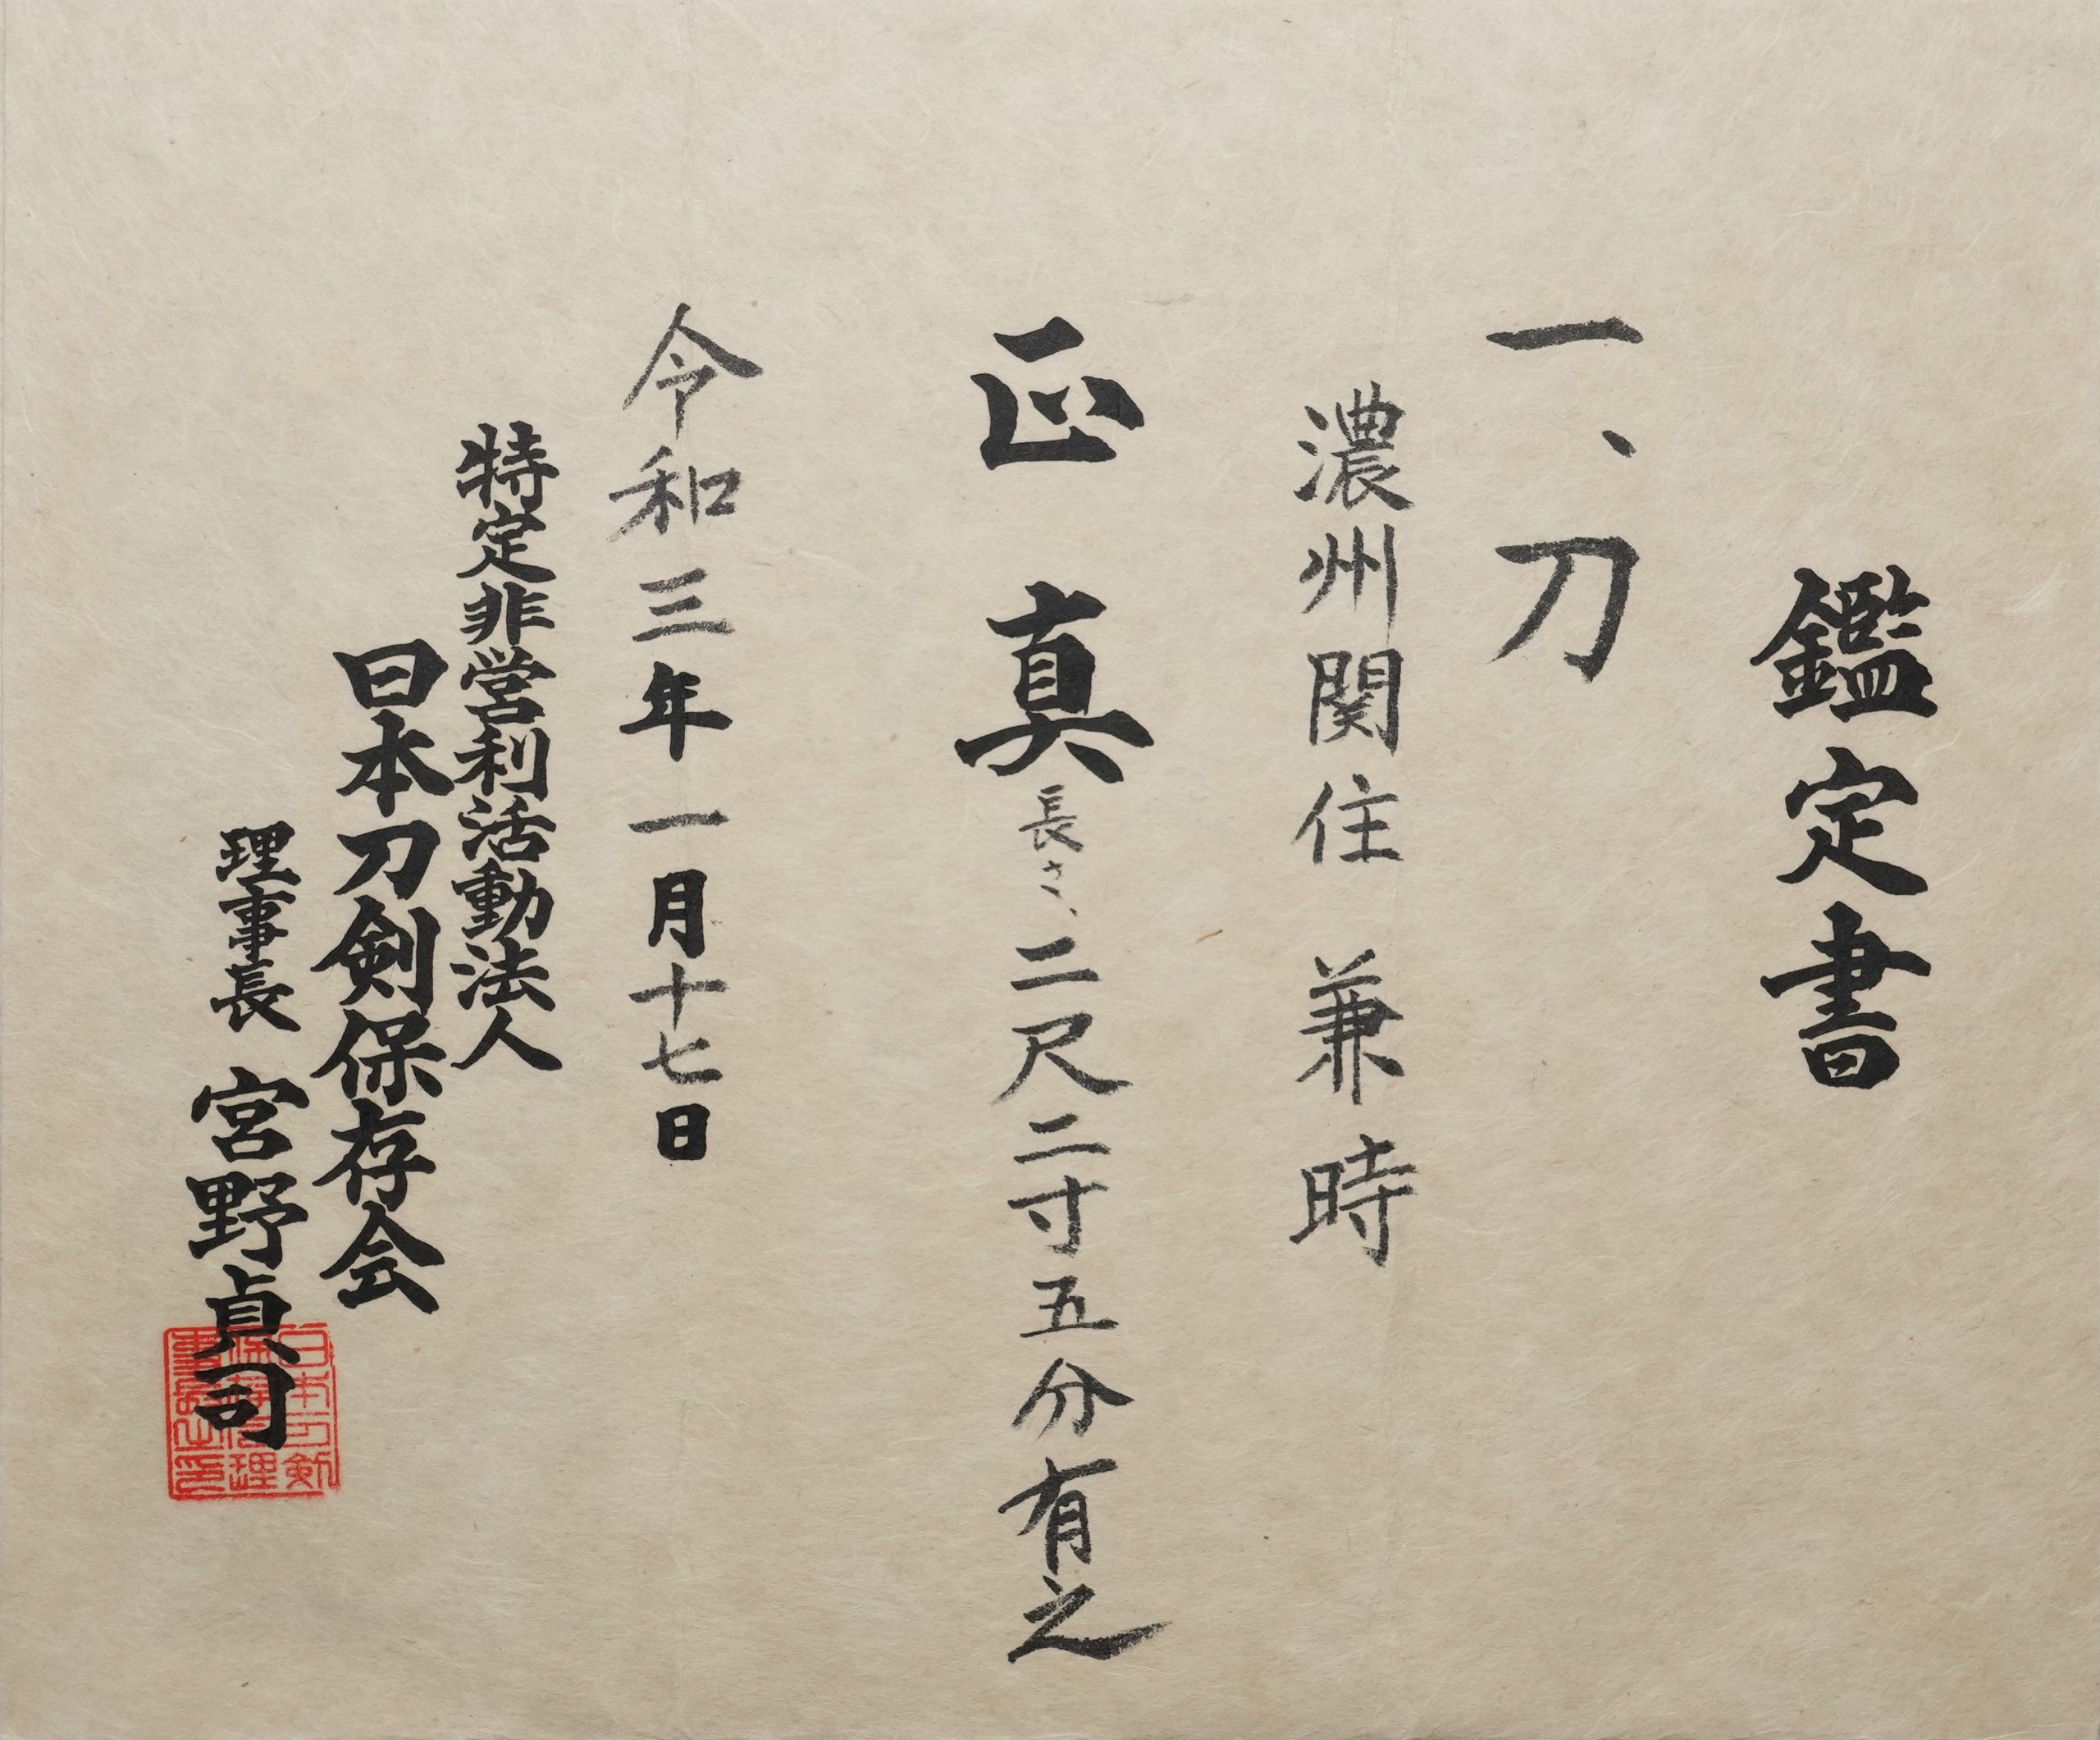 鑑定書
一、刀
濃州関住 兼時
正真 長さ、二尺二寸五分有之
令和三年一月十七日
特定非営利活動法人
日本刀剣保存会
理事長 宮野貞司